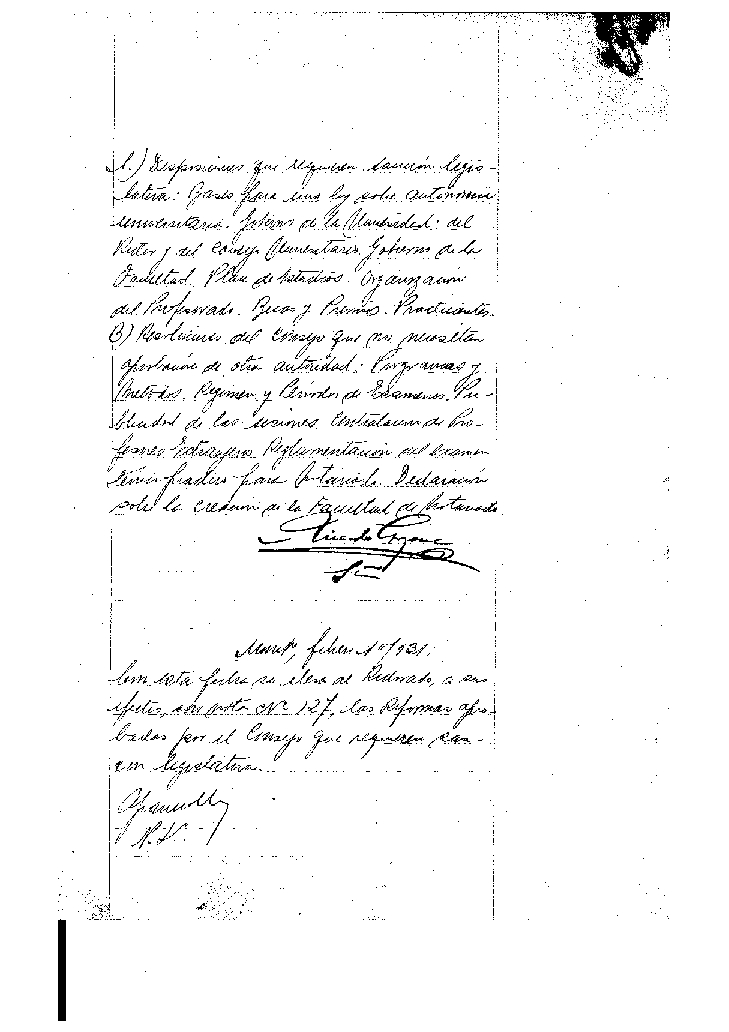 A.) Disposiciones que requieren sanción legis-
lativa: Bases para una ley sobre autonomía
universitaria. Gobierno de la Universidad: del
Rector y del Consejo Universitario. Gobierno de la
Facultad. Plan de Estudios. Organización
del Profesorado. Becas y Premios. Practicantes.
B) Resoluciones del Consejo que no necesitan
aprobación de otra autoridad: Programas y
métodos. Régimen y Períodos de Exámenes. Pu-
blicidad de las sesiones. Contratación de Pro-
fesores Extranjeros. Reglamentación del examen
para Notariado. Declaración
sobre la creación de la Facultad de Notariado
Mont°, febrero 10/931.
Con esta fecha se eleva al Rectorado, a sus
efectos, con nota N° 127, las Reformas apro-
badas por el Consejo que requieren san-
ción legislativa.